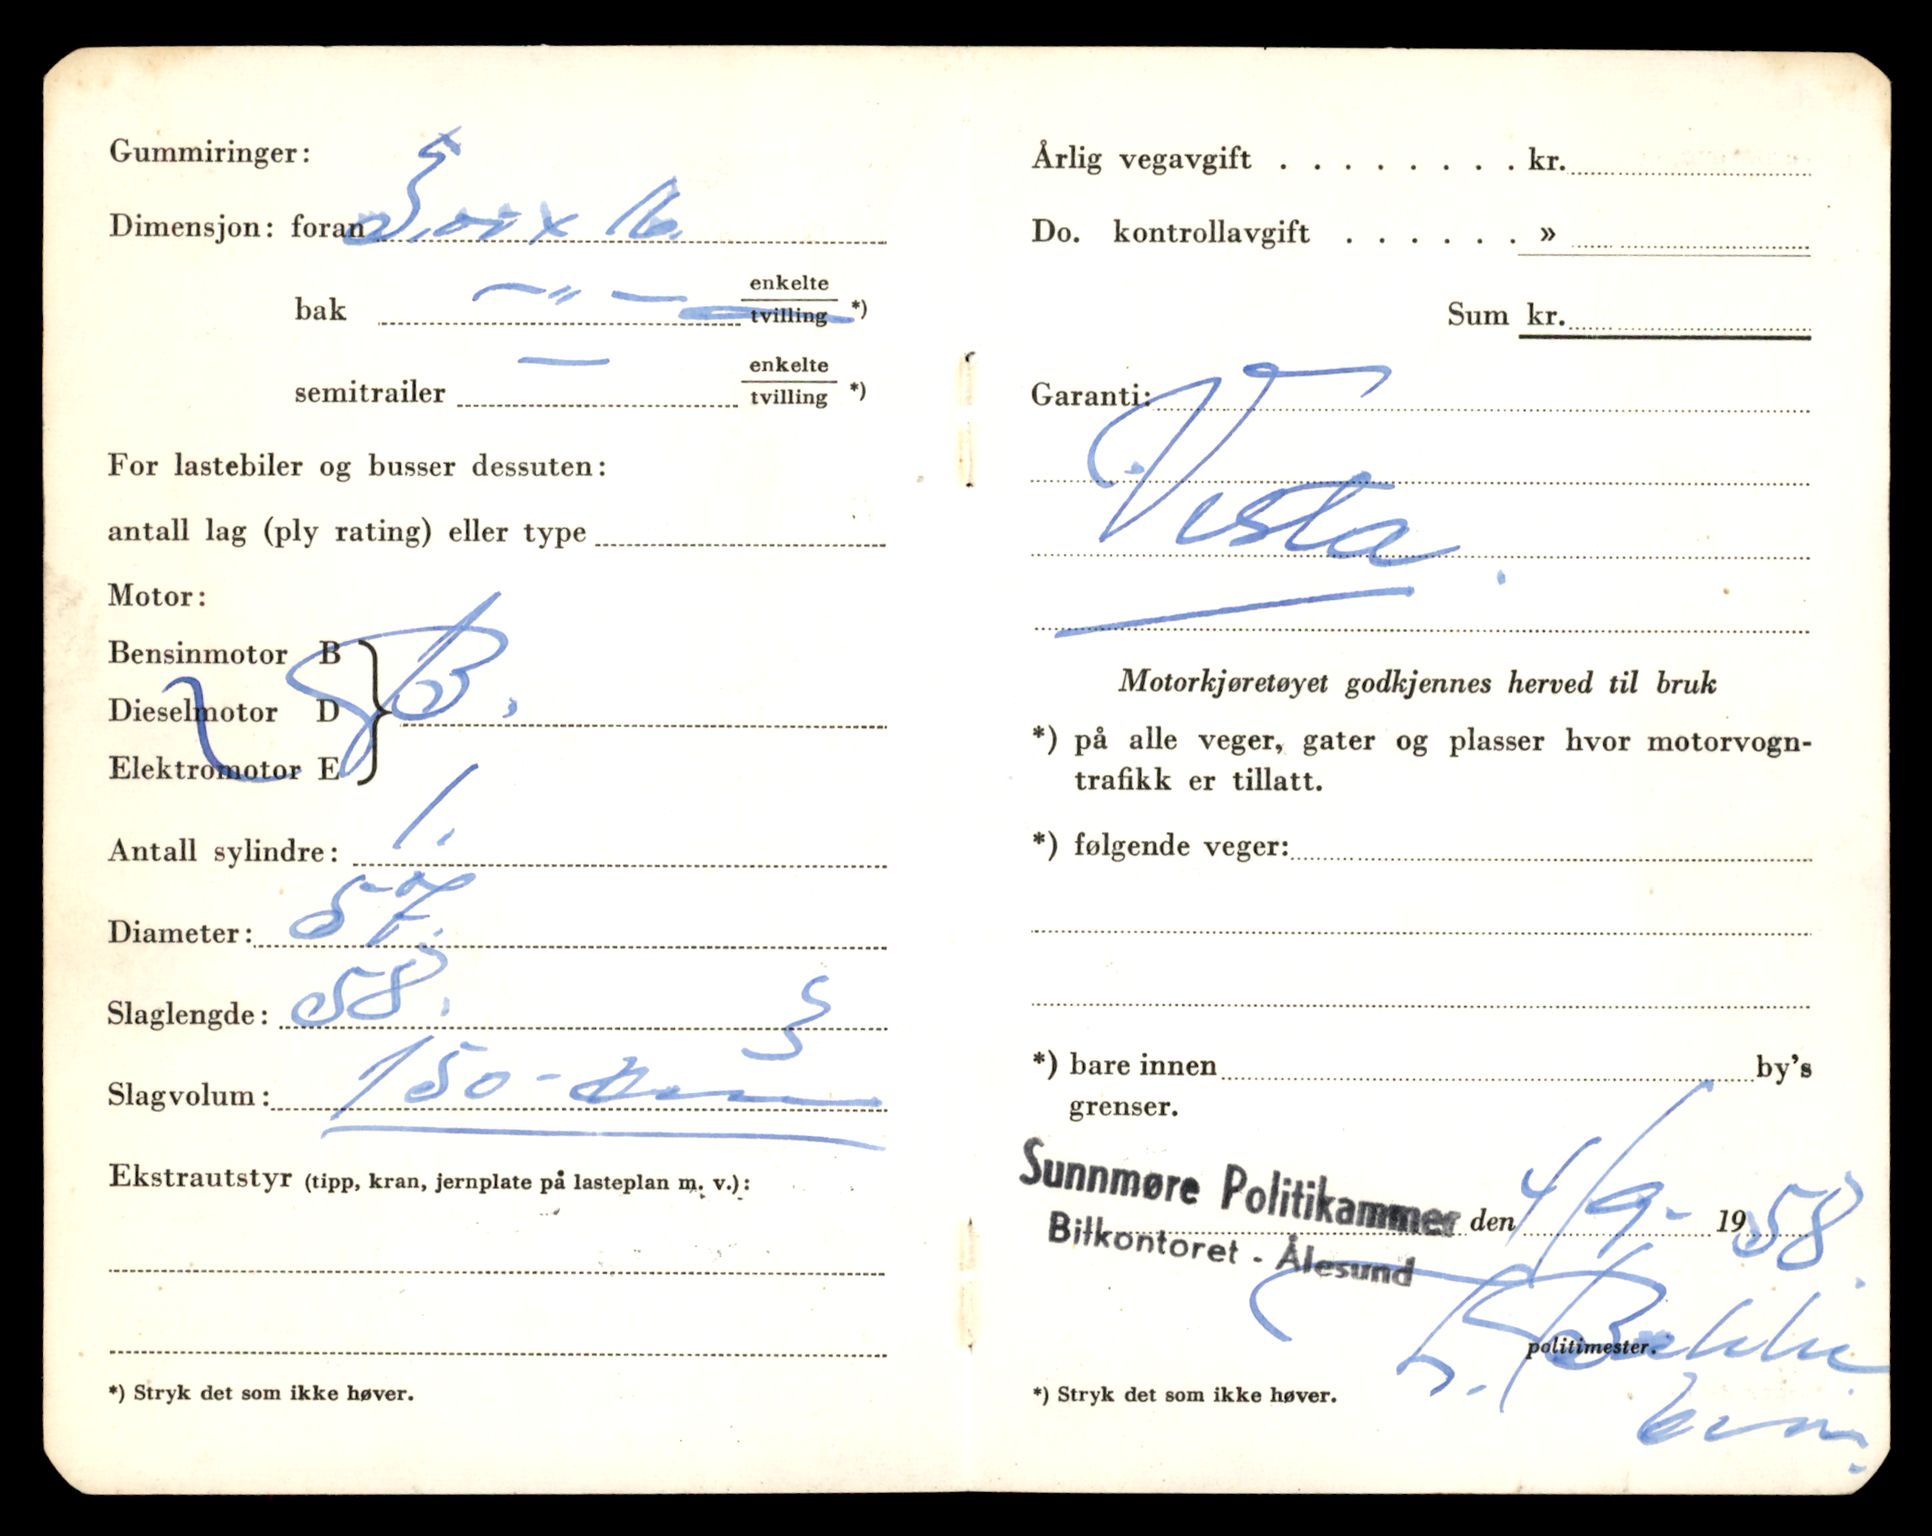 Gummiringer:
Dimensjon: foran 5.00 x 16.
bak —"— enkelte
tvilling *)
semitrailer — enkelte
tvilling *)
For lastebiler og busser dessuten:
antall lag (ply rating) eller type
Motor:
Bensinmotor B
Dieselmotor D B.
Elektromotor E
Antall sylindre: 1.
Diameter: 57.
Slaglengde: 58.
Slagvolum: 150-
Ekstrautstyr (tipp, kran, jernplate på lasteplan m. v.):
*) Stryk det som ikke høver.
Årlig vegavgift . . . . . . . . kr.
Do. kontrollavgift . . . . . . »
Sum kr.
Garanti:
Vesta.
Motorkjøretøyet godkjennes herved til bruk
*) på alle veger, gater og plasser hvor motorvogn-
trafikk er tillatt.
*) følgende veger:
*) bare innen by's
grenser.
Sunnmøre Politikammer den 4/9- 1958.
Bilkontoret - Ålesund
politimester.
*) Stryk det som ikke høver.